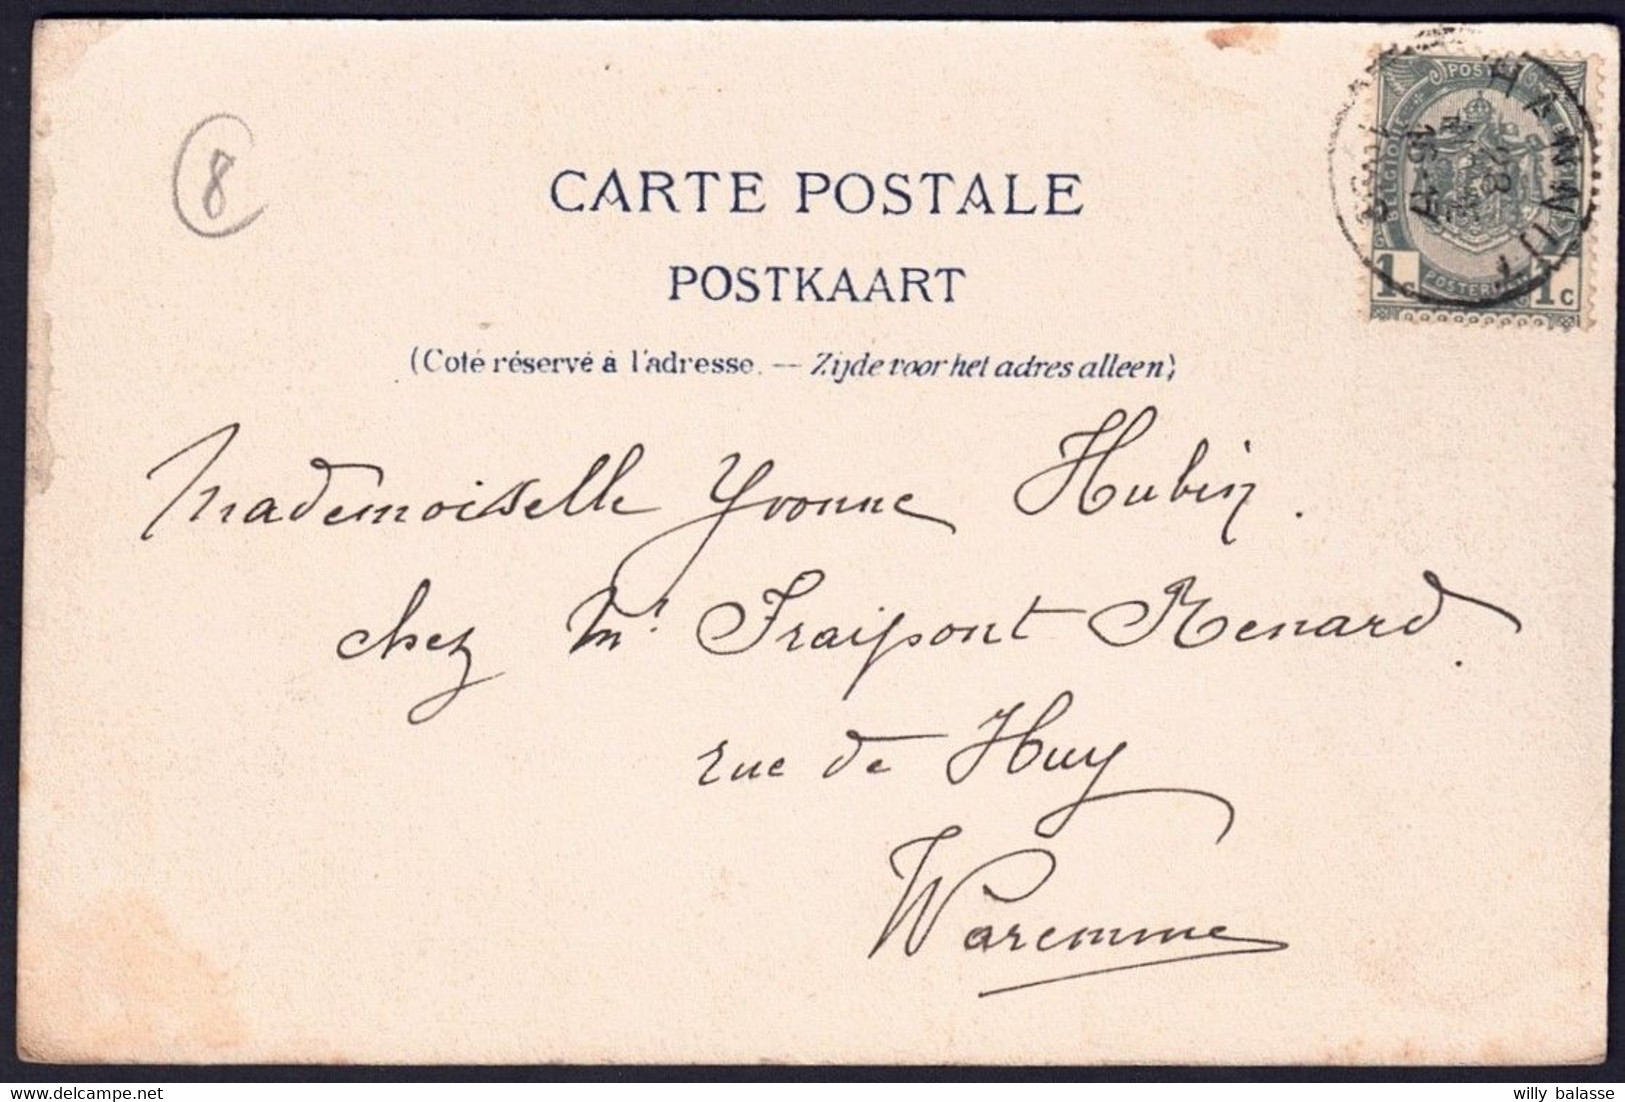 8
CARTE POSTALE
POSTKAART
(Coté réservé à l'adresse. — Zijde voor het adres alleen)
HANNUT
16-17
28
POSTES
BELGIQUE
1c 1c
Mademoiselle Yvonne Hubin.
chez Mr Fraipont Renard.
rue de Huy
Waremme
willy balasse